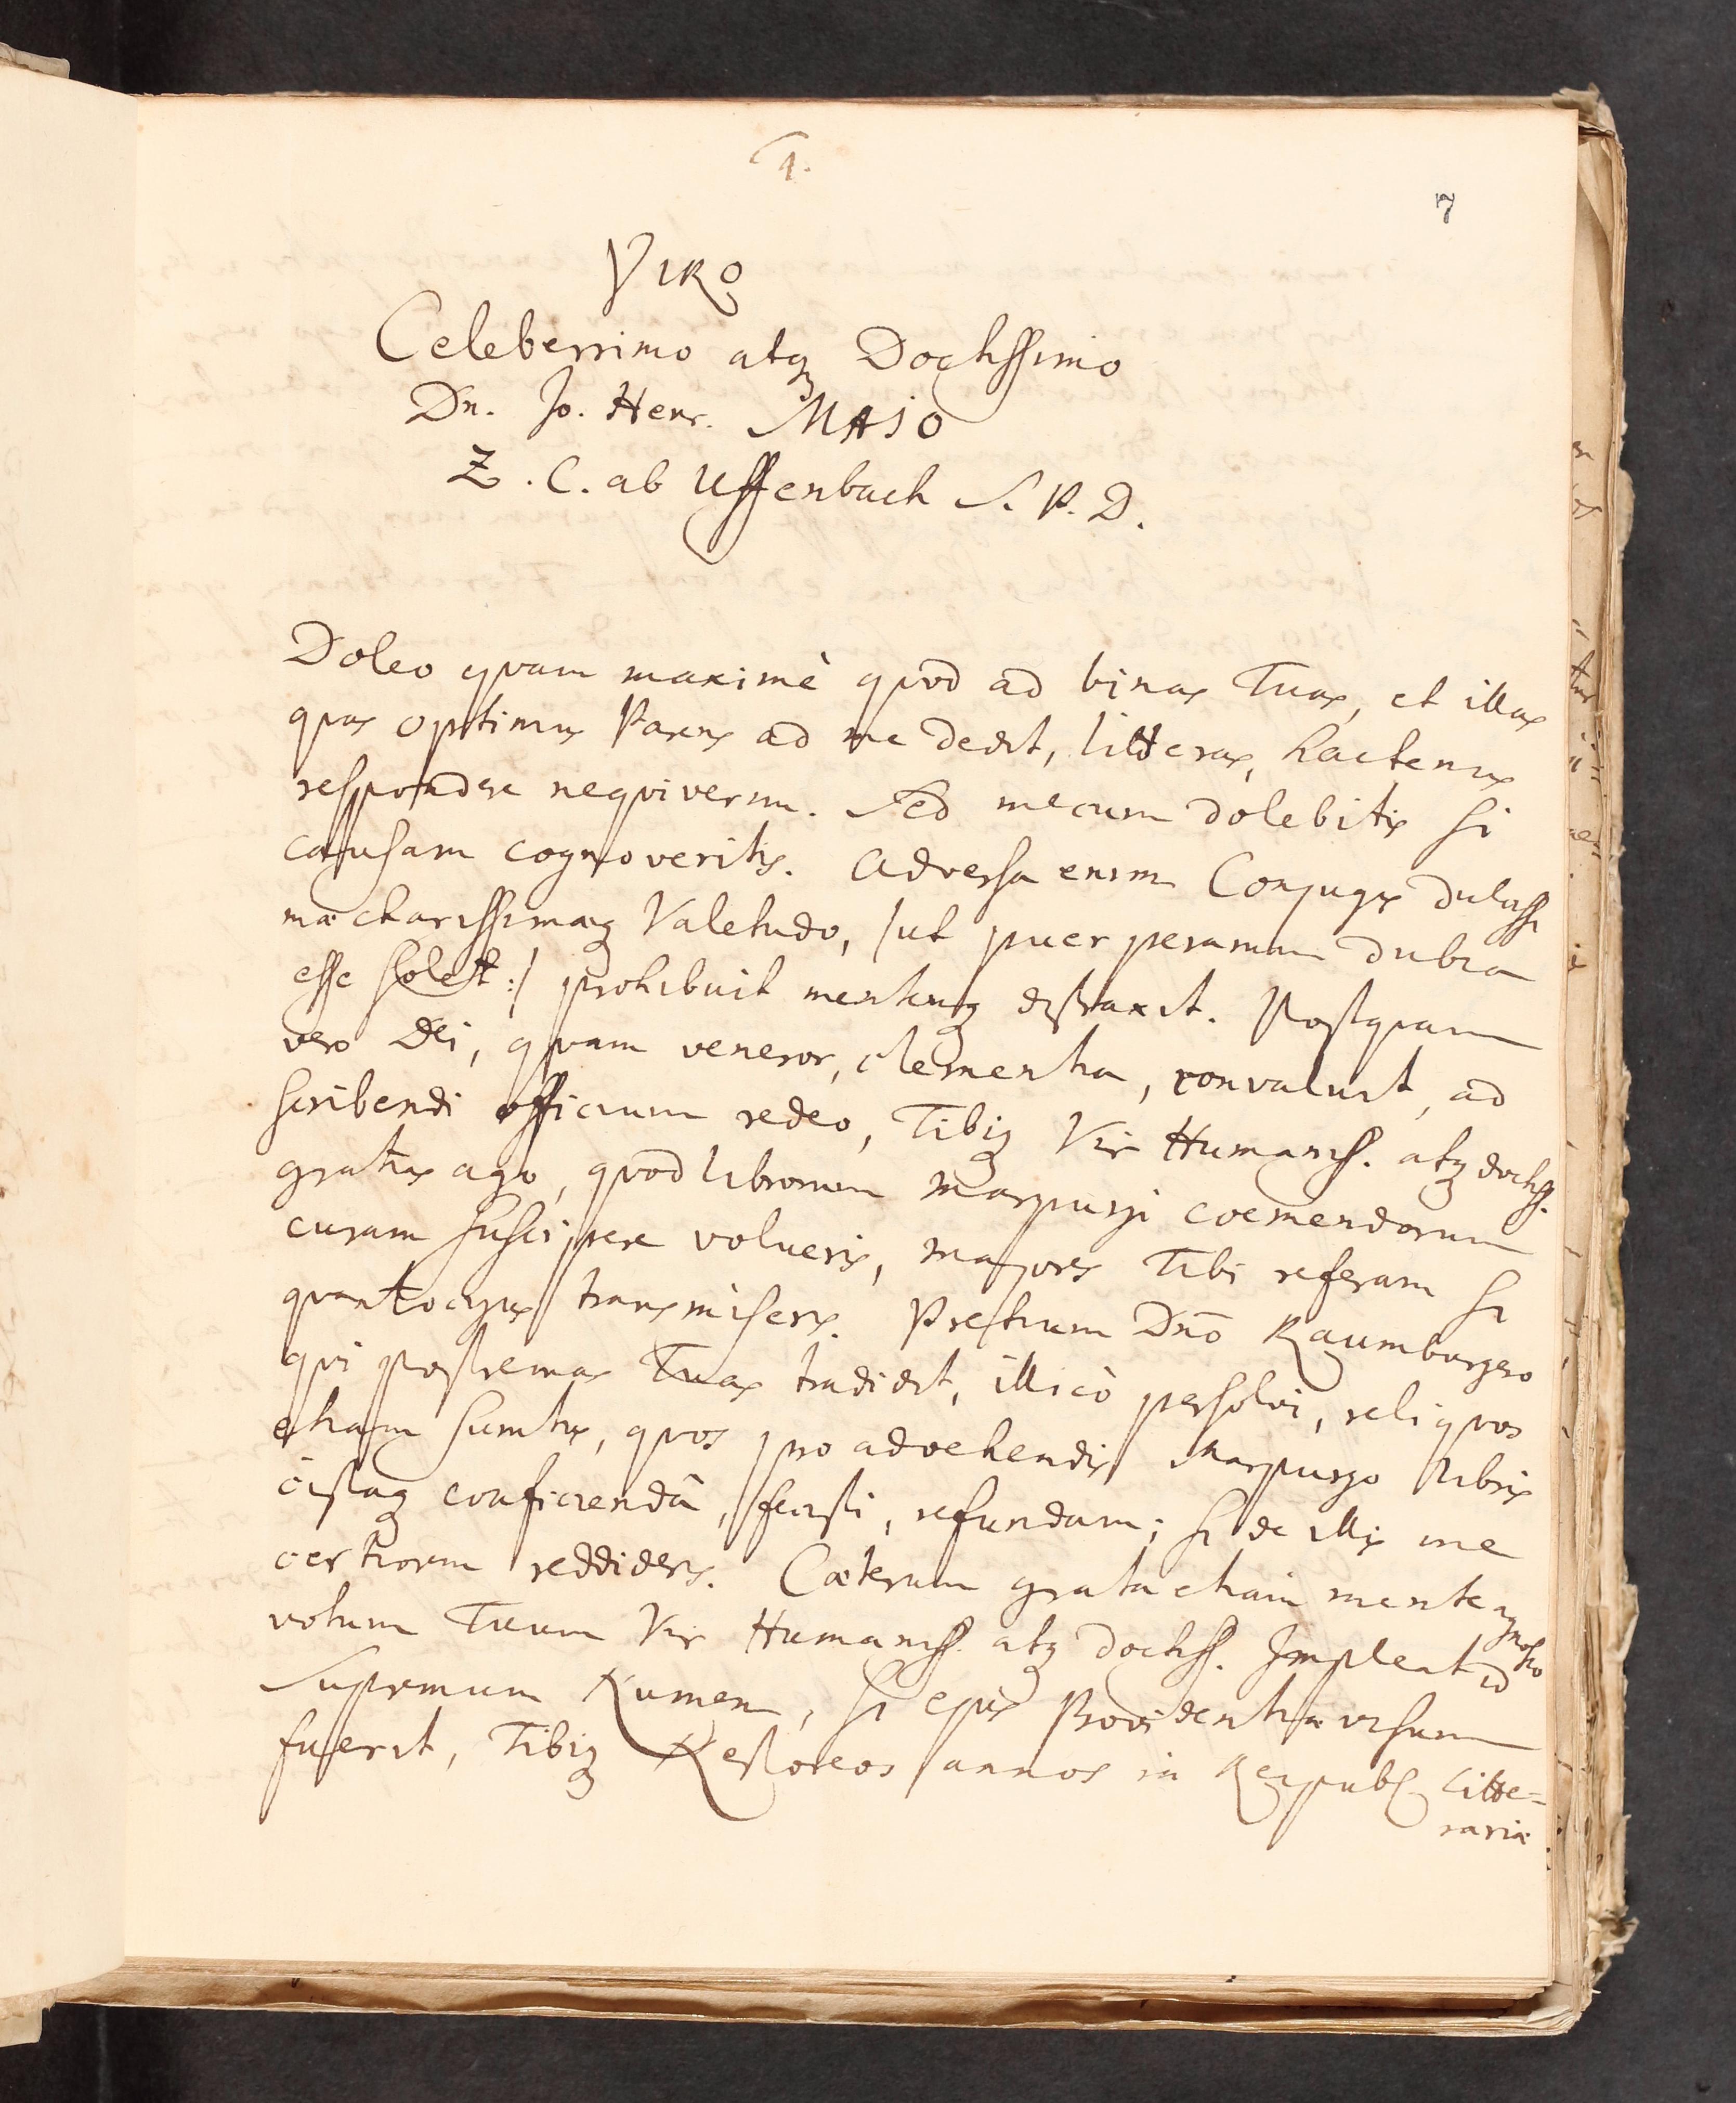 4.
7
VIRO
Celeberrimo atq Doctissimo
Dn. Jo. Henr. MAJO
Z. C. ab Uffenbach S. P. D.
Doleo quam maximè quod ad binas Tuas, et illas
quas optimus Parens ad me dedit, litteras, hactenus
respondere nequiverim. Sed mecum dolebitis si
causam cognoveritis. Adversa enim Conjugis dulcissi
mæ charissimæq Valetudo, /ut puerperarum dubia
esse solet:/ prohibuit mentemq distraxit. Postquam
vero Dei, quam veneror, clementia, convaluit, ad
scribendi officium redeo, Tibiq Vir Humaniss. atq doctiss.
gratias ago, quod librorum Marpurgi coemendorum
curam suscipere volueris, majores Tibi referam si
quantocyus transmiseris. Pretium Dno Raumburgero
qui postremas Tuas tradidit, illicò persolvi, reliquos
etiam sumtus, quos pro advehendis Marpurgo libris
cistaq conficiendâ, fecisti, refundam; si de illis me
certiorem reddideris. Cæterum grata etiam mente agnosco
votum Tuum Vir Humaniss. atq doctiss. Impleat id
Supremum Numen, si ejus Providentiæ visum
fuerit, Tibiq Nestoreos annos in Republ. Litte=
raria